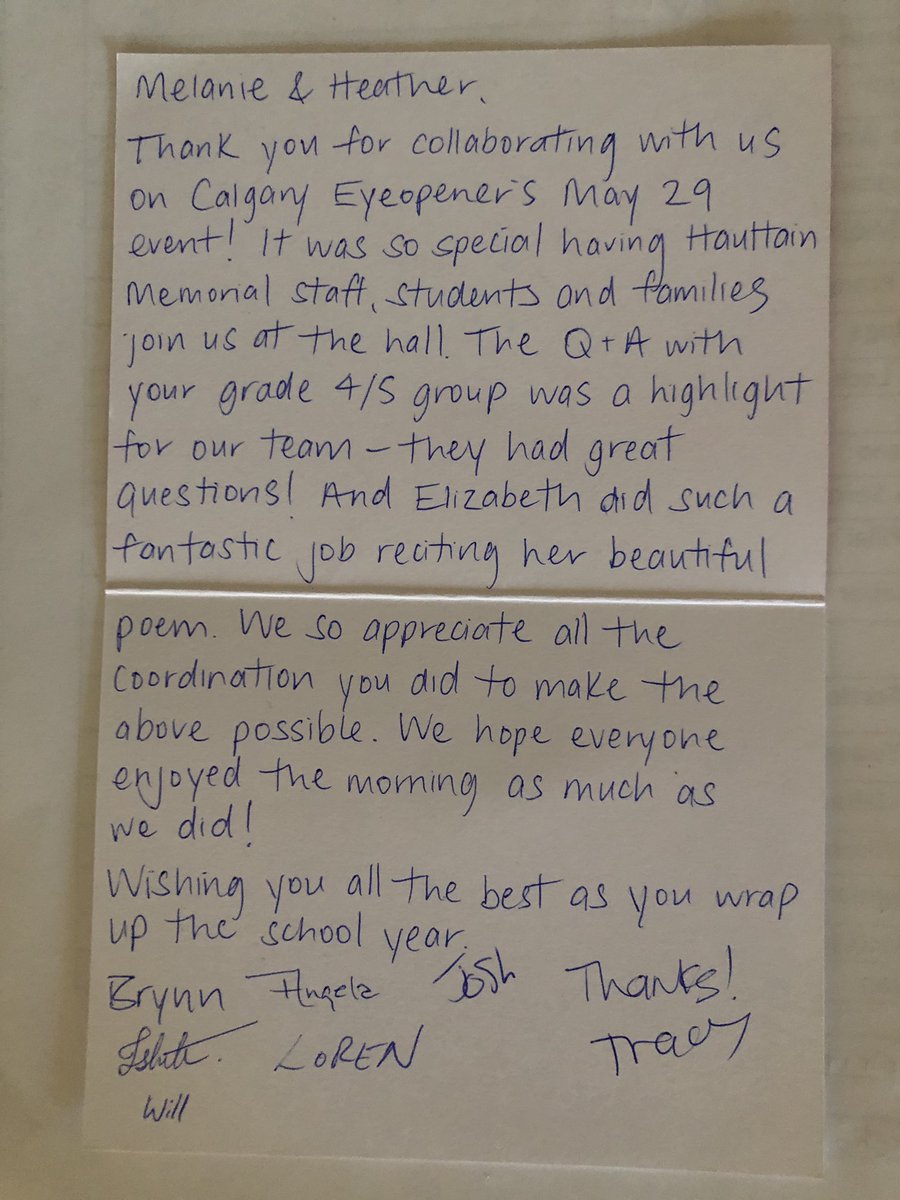 Melanie & Heather,
Thank you for collaborating with us
on Calgary Eyeopener's May 29
event! It was so special having Hauttain
Memorial staff, students and families
join us at the hall. The Q+A with
your grade 4/5 group was a highlight
for our team – they had great
questions! And Elizabeth did such a
fantastic job reciting her beautiful
poem. We so appreciate all the
coordination you did to make the
above possible. We hope everyone
enjoyed the morning as much as
we did!
Wishing you all the best as you wrap
up the school year.
Brynn Angela Josh Thanks!
LOREN Tracy
Will